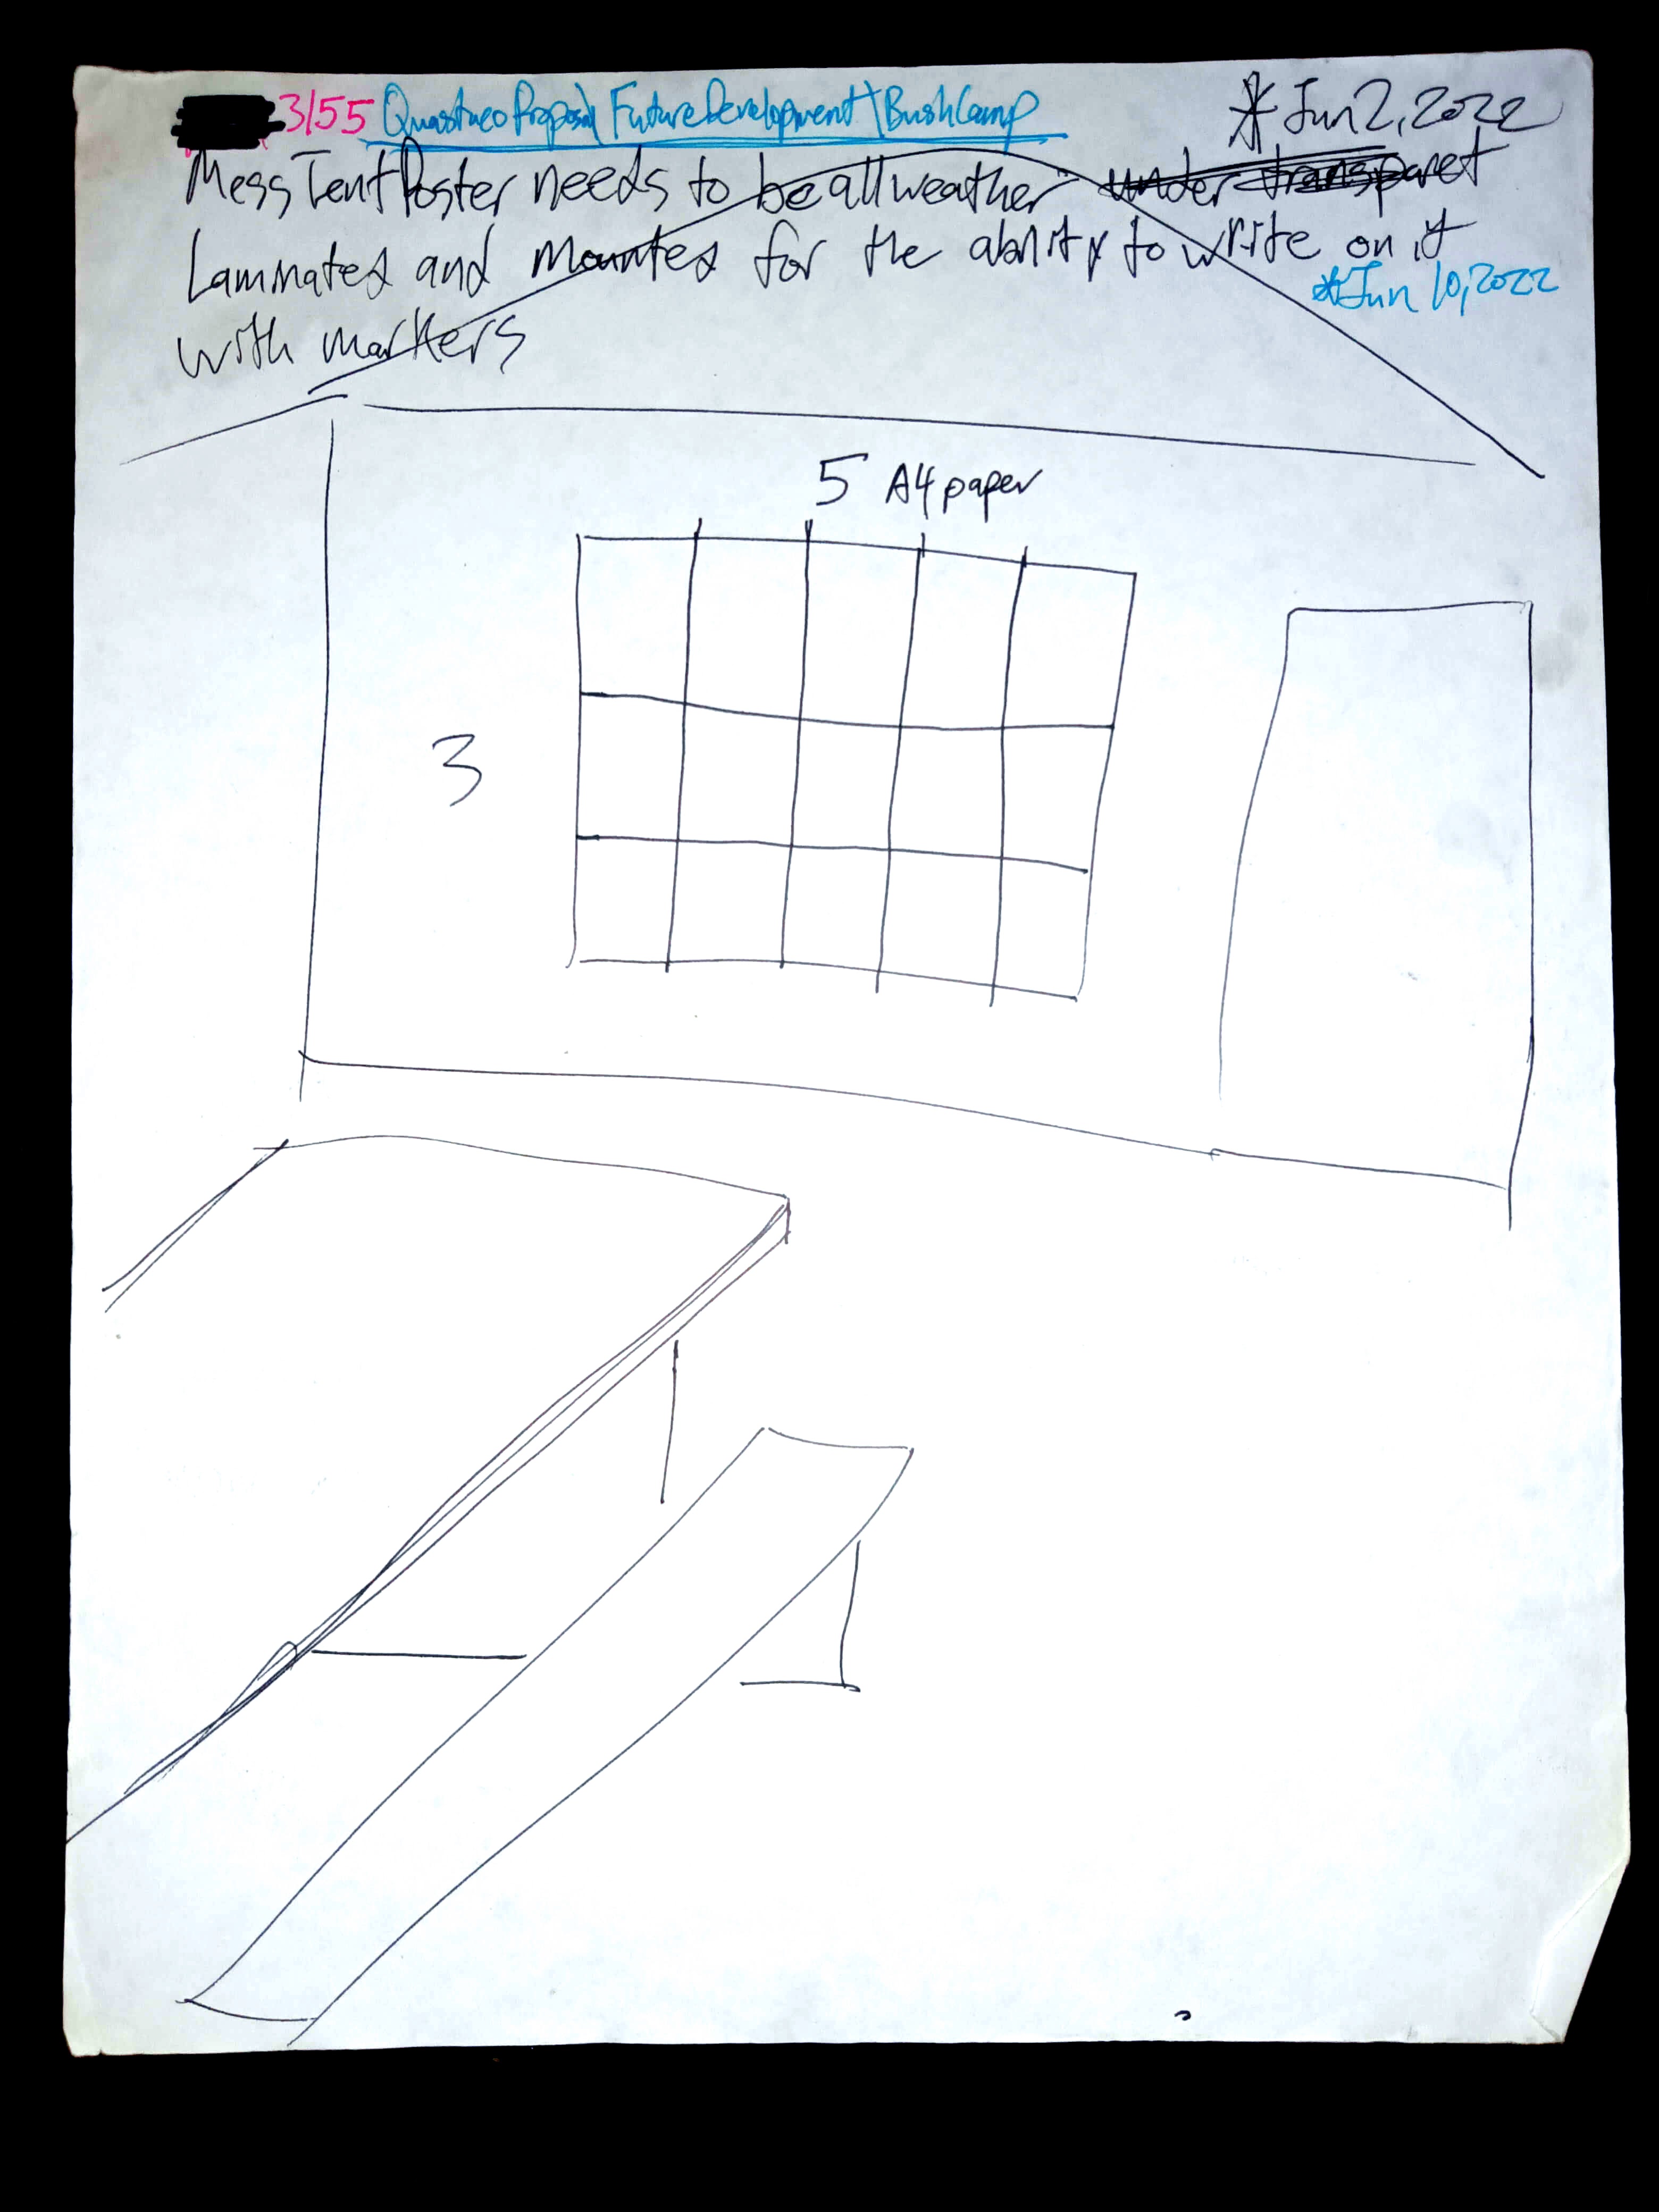 3/55 Quastuco Proposal Future Development\Bush Camp
* Jun 2, 2022
Mess Tent Poster needs to be all weather under transparet
Laminated and Mounted for the ability to write on it
* Jun 10, 2022
with markers
5 A4 paper
3